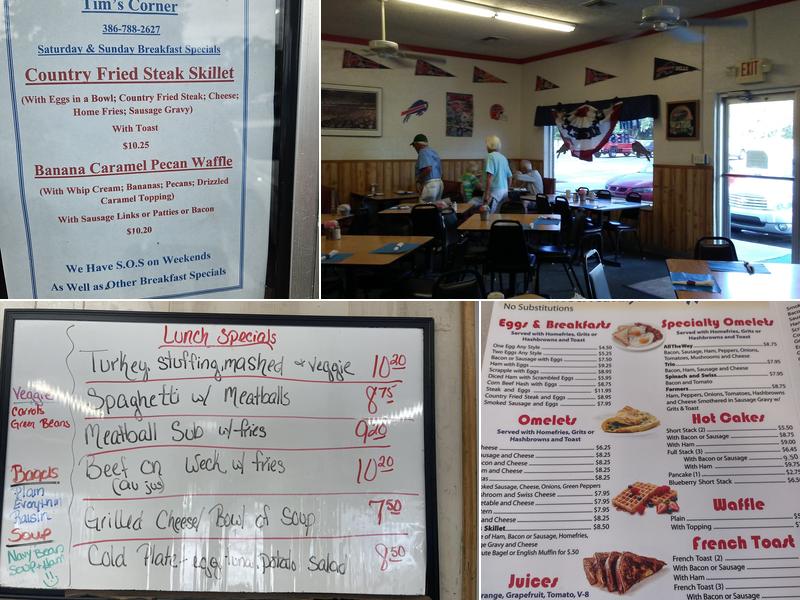 Tim's Corner
386-788-2627
Saturday & Sunday Breakfast Specials
Country Fried Steak Skillet
(With Eggs in a Bowl; Country Fried Steak; Cheese;
Home Fries; Sausage Gravy)
With Toast
$10.25
Banana Caramel Pecan Waffle
(With Whip Cream; Bananas; Pecans; Drizzled
Caramel Topping)
With Sausage Links or Patties or Bacon
$10.20
We Have S.O.S on Weekends
As Well as Other Breakfast Specials
EXIT
Lunch Specials
Turkey, stuffing, mashed & veggie 10.20
Spaghetti w/ Meatballs 8.75
Meatball Sub w/fries 9.20
Beef on Weck w/ fries 10.20
(au jus)
Grilled Cheese/ Bowl of Soup 7.50
Cold Plate - egg, tuna, potato salad 8.50
Veggie
Carrots
Green Beans
Bagels
Plain
Everything
Raisin
Soup
Navy Bean
Soup & Ham
No Substitutions
Eggs & Breakfasts
Served with Homefries, Grits or
Hashbrowns and Toast
One Egg Any Style $4.50
Two Eggs Any Style $5.25
Bacon or Sausage with Eggs $7.50
Ham with Eggs $9.25
Scrapple with Eggs $8.95
Diced Ham with Scrambled Eggs $5.95
Corn Beef Hash with Eggs $8.75
Steak and Eggs $11.95
Country Fried Steak and Eggs $8.95
Smoked Sausage and Eggs $7.95
Omelets
Served with Homefries, Grits or
Hashbrowns and Toast
Cheese $6.25
Sausage and Cheese $8.25
Bacon and Cheese $8.25
and Cheese $8.25
$8.25
Smoked Sausage, Cheese, Onions, Green Peppers
Mushroom and Swiss Cheese $7.95
Vegetable and Cheese $7.95
$7.95
and Cheese $8.25
Skillet $8.50
of Ham, Bacon or Sausage, Homefries,
Gravy and Cheese
Substitute Bagel or English Muffin for $.50
Juices
Orange, Grapefruit, Tomato, V-8
Specialty Omelets
All The Way $8.75
Bacon, Sausage, Ham, Peppers, Onions,
Tomatoes, Mushrooms and Cheese
Trio $7.95
Bacon, Ham, Sausage and Cheese
Spinach and Swiss $7.95
Bacon and Tomato
Farmers $8.75
Ham, Peppers, Onions, Tomatoes, Hashbrowns
and Cheese Smothered in Sausage Gravy w/
Grits & Toast
Hot Cakes
Short Stack (2) $5.50
With Bacon or Sausage $8.75
With Ham $9.00
Full Stack (3) $6.45
With Bacon or Sausage 9.50
With Ham $9.75
Pancake (1) $2.75
Blueberry Short Stack $6.50
Waffle
Plain
With Topping
French Toast
French Toast (2)
With Bacon or Sausage
With Ham
French Toast (3)
With Bacon or Sausage